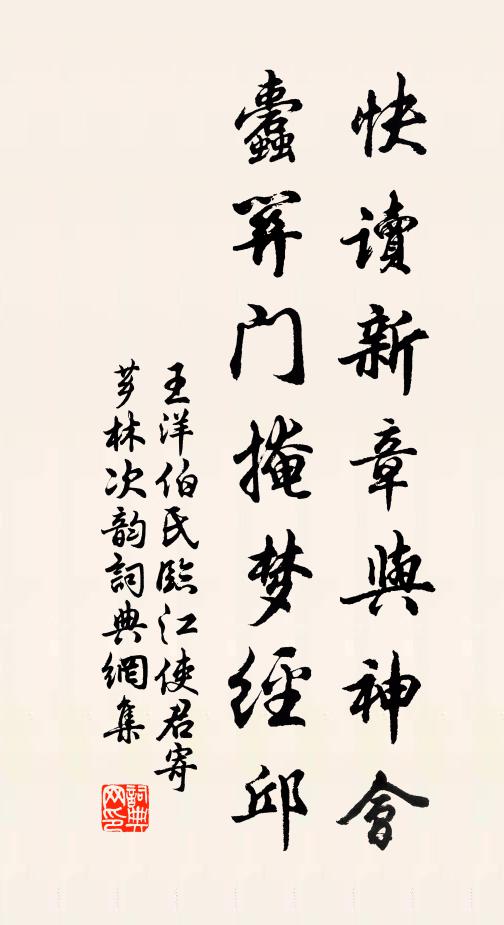 快讀新章與神會
蠹門掩梦經邱
王洋伯氏臨江使君寄
芗林次韵詞典網集
詞典网印